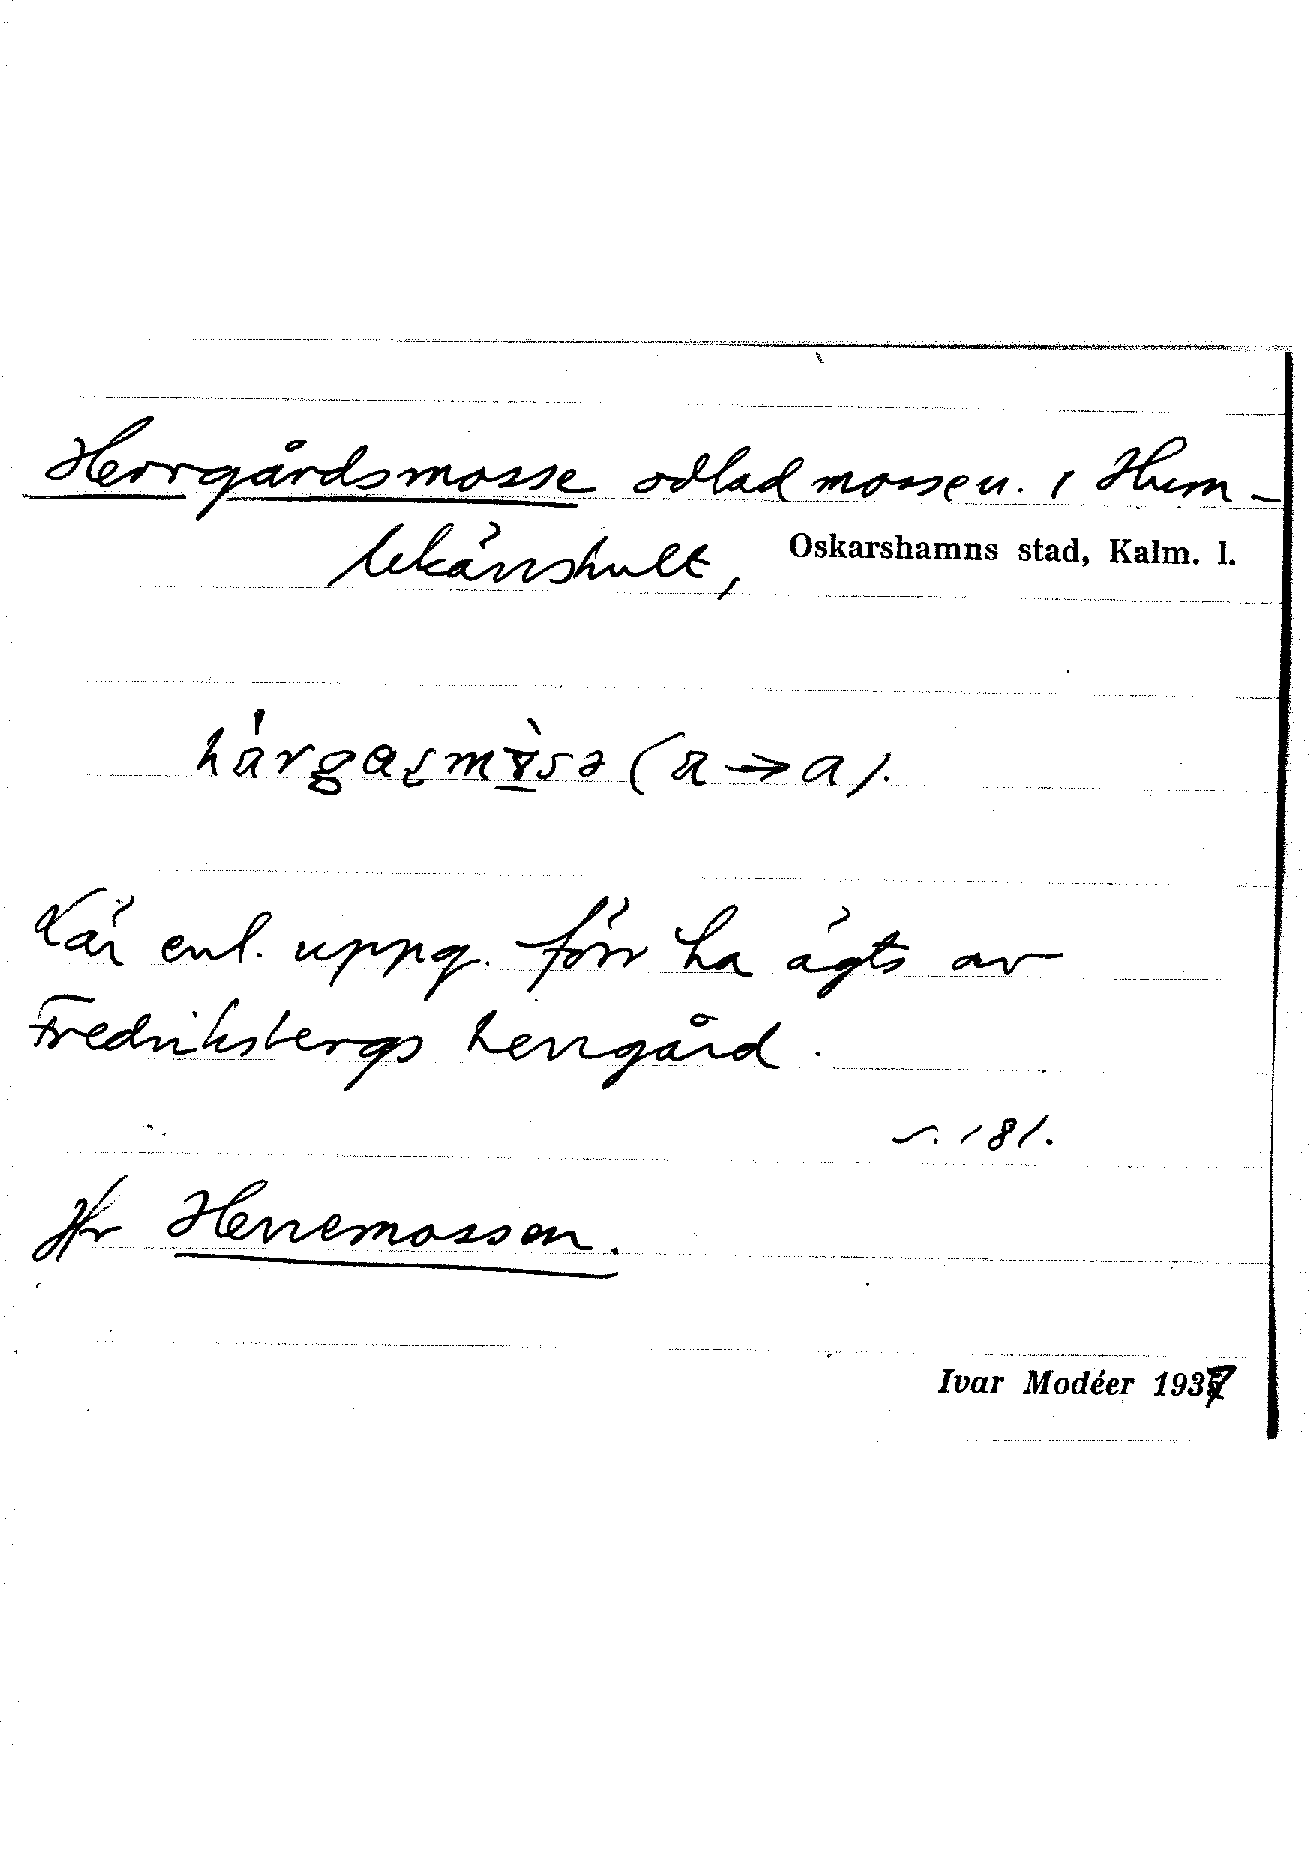 Herrgårdsmosse odlad mosse u. 1 Hum-
lekärrshult,
Oskarshamns stad, Kalm. l.
(a → a).
Lär enl. uppg. förr ha ägts av
Fredriksbergs herrgård.
s. 181.
Jfr Herremossen.
Ivar Modéer 1937